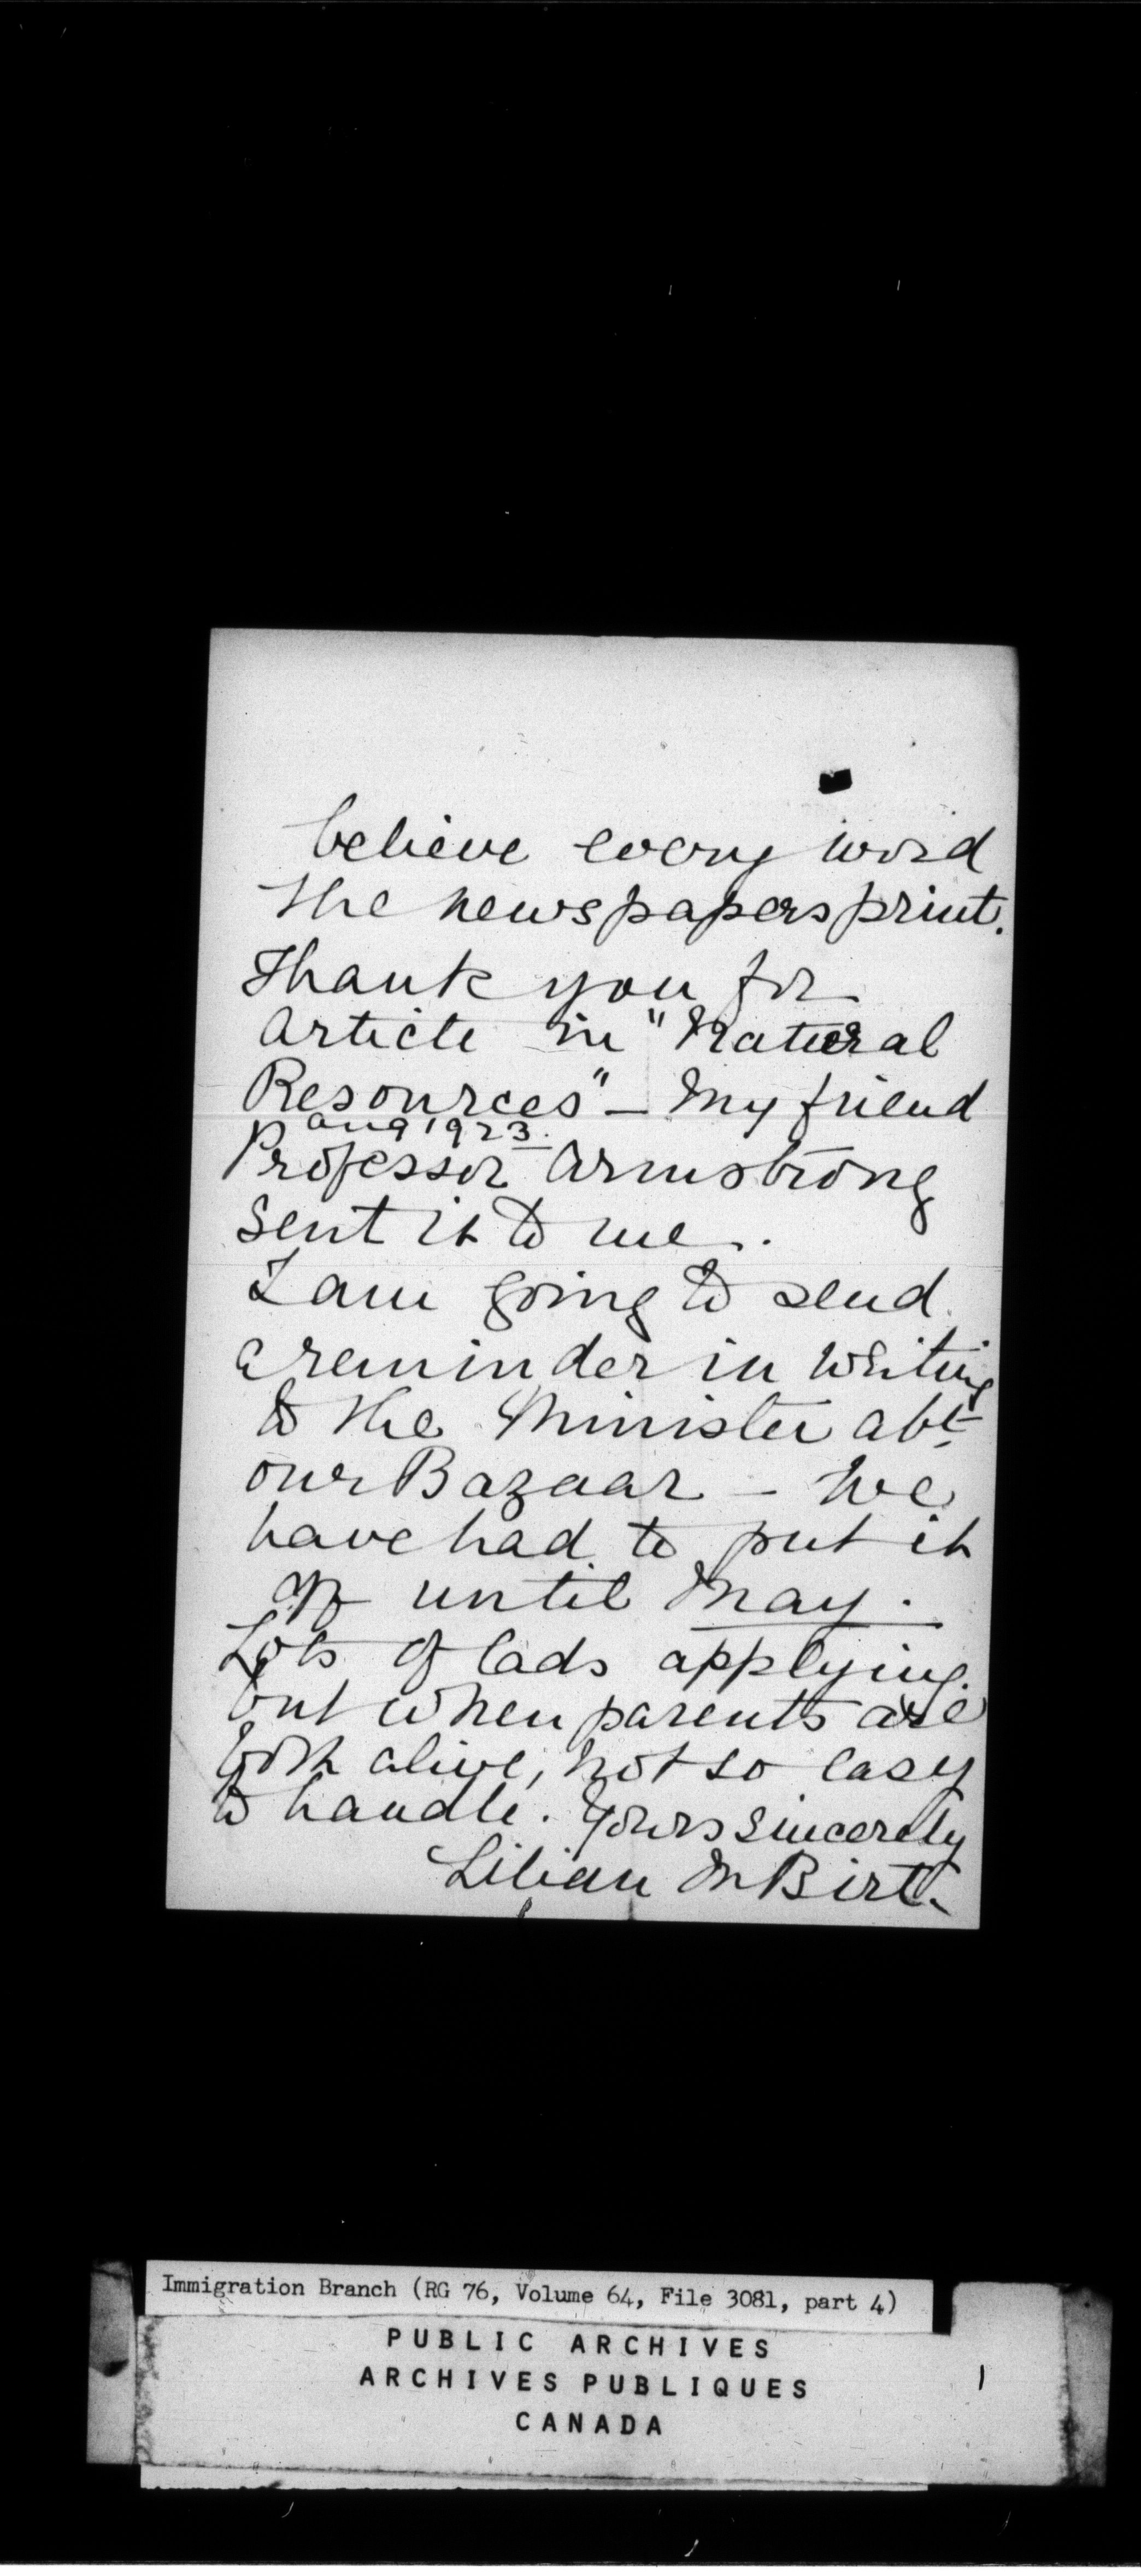 believe every word
the newspapers print.
Thank you for
article in "Natural
Resources" – My friend
Aug 1923.
Professor Armstrong
sent it to me.
I am going to send
a reminder in writing
to the Minister abt
our Bazaar – We
have had to put it
off until May.
Lots of lads applying
but when parents are
both alive, not so easy
to handle. Yours sincerely
Lilian M Birt.
Immigration Branch (RG 76, Volume 64, File 3081, part 4)
PUBLIC ARCHIVES
ARCHIVES PUBLIQUES
CANADA